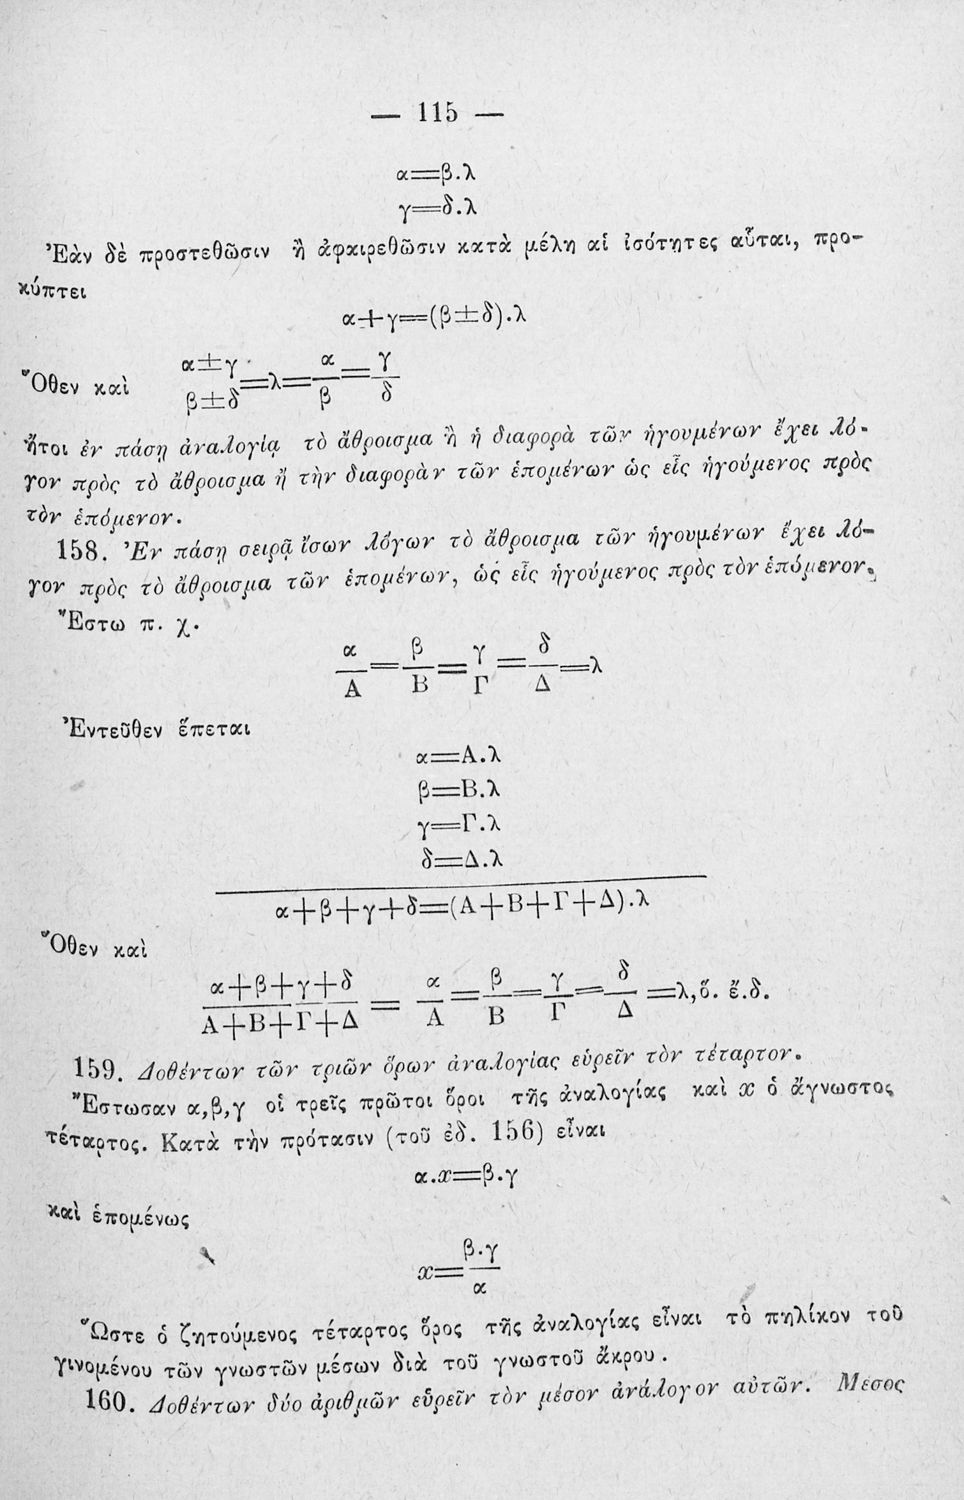 — 115 —
α=β.λ
γ=δ.λ
Ἐὰν δὲ προστεθῶσιν ἢ ἀφαιρεθῶσιν κατὰ μέλη αἱ ἰσότητες αὗται, προ-
κύπτει
α+γ=(β±δ).λ
Ὅθεν καὶ α±γ/β±δ=λ=α/β=γ/δ
ἤτοι ἐν πάσῃ ἀναλογίᾳ τὸ ἄθροισμα ἢ ἡ διαφορὰ τῶν ἡγουμένων ἔχει λό-
γον πρὸς τὸ ἄθροισμα ἢ τὴν διαφορὰν τῶν ἑπομένων ὡς εἷς ἡγούμενος πρὸς
τὸν ἑπόμενον.
158. Ἐν πάσῃ σειρᾷ ἴσων λόγων τὸ ἄθροισμα τῶν ἡγουμένων ἔχει λό-
γον πρὸς τὸ ἄθροισμα τῶν ἑπομένων, ὡς εἷς ἡγούμενος πρὸς τὸν ἑπόμενον.
Ἔστω π. χ.
α/Α=β/Β=γ/Γ=δ/Δ=λ
Ἐντεῦθεν ἕπεται
α=Α.λ
β=Β.λ
γ=Γ.λ
δ=Δ.λ
α+β+γ+δ=(Α+Β+Γ+Δ).λ
Ὅθεν καὶ
α+β+γ+δ/Α+Β+Γ+Δ=α/Α=β/Β=γ/Γ=δ/Δ=λ,ὅ. ἔ.δ.
159. Δοθέντων τῶν τριῶν ὅρων ἀναλογίας εὑρεῖν τὸν τέταρτον.
Ἔστωσαν α,β,γ οἱ τρεῖς πρῶτοι ὅροι τῆς ἀναλογίας καὶ x ὁ ἄγνωστος
τέταρτος. Κατὰ τὴν πρότασιν (τοῦ ἐδ. 156) εἶναι
α.x=β.γ
καὶ ἑπομένως
x=β.γ/α
Ὥστε ὁ ζητούμενος τέταρτος ὅρος τῆς ἀναλογίας εἶναι τὸ πηλίκον τοῦ
γινομένου τῶν γνωστῶν μέσων διὰ τοῦ γνωστοῦ ἄκρου.
160. Δοθέντων δύο ἀριθμῶν εὑρεῖν τὸν μέσον ἀνάλογον αὐτῶν. Μέσος